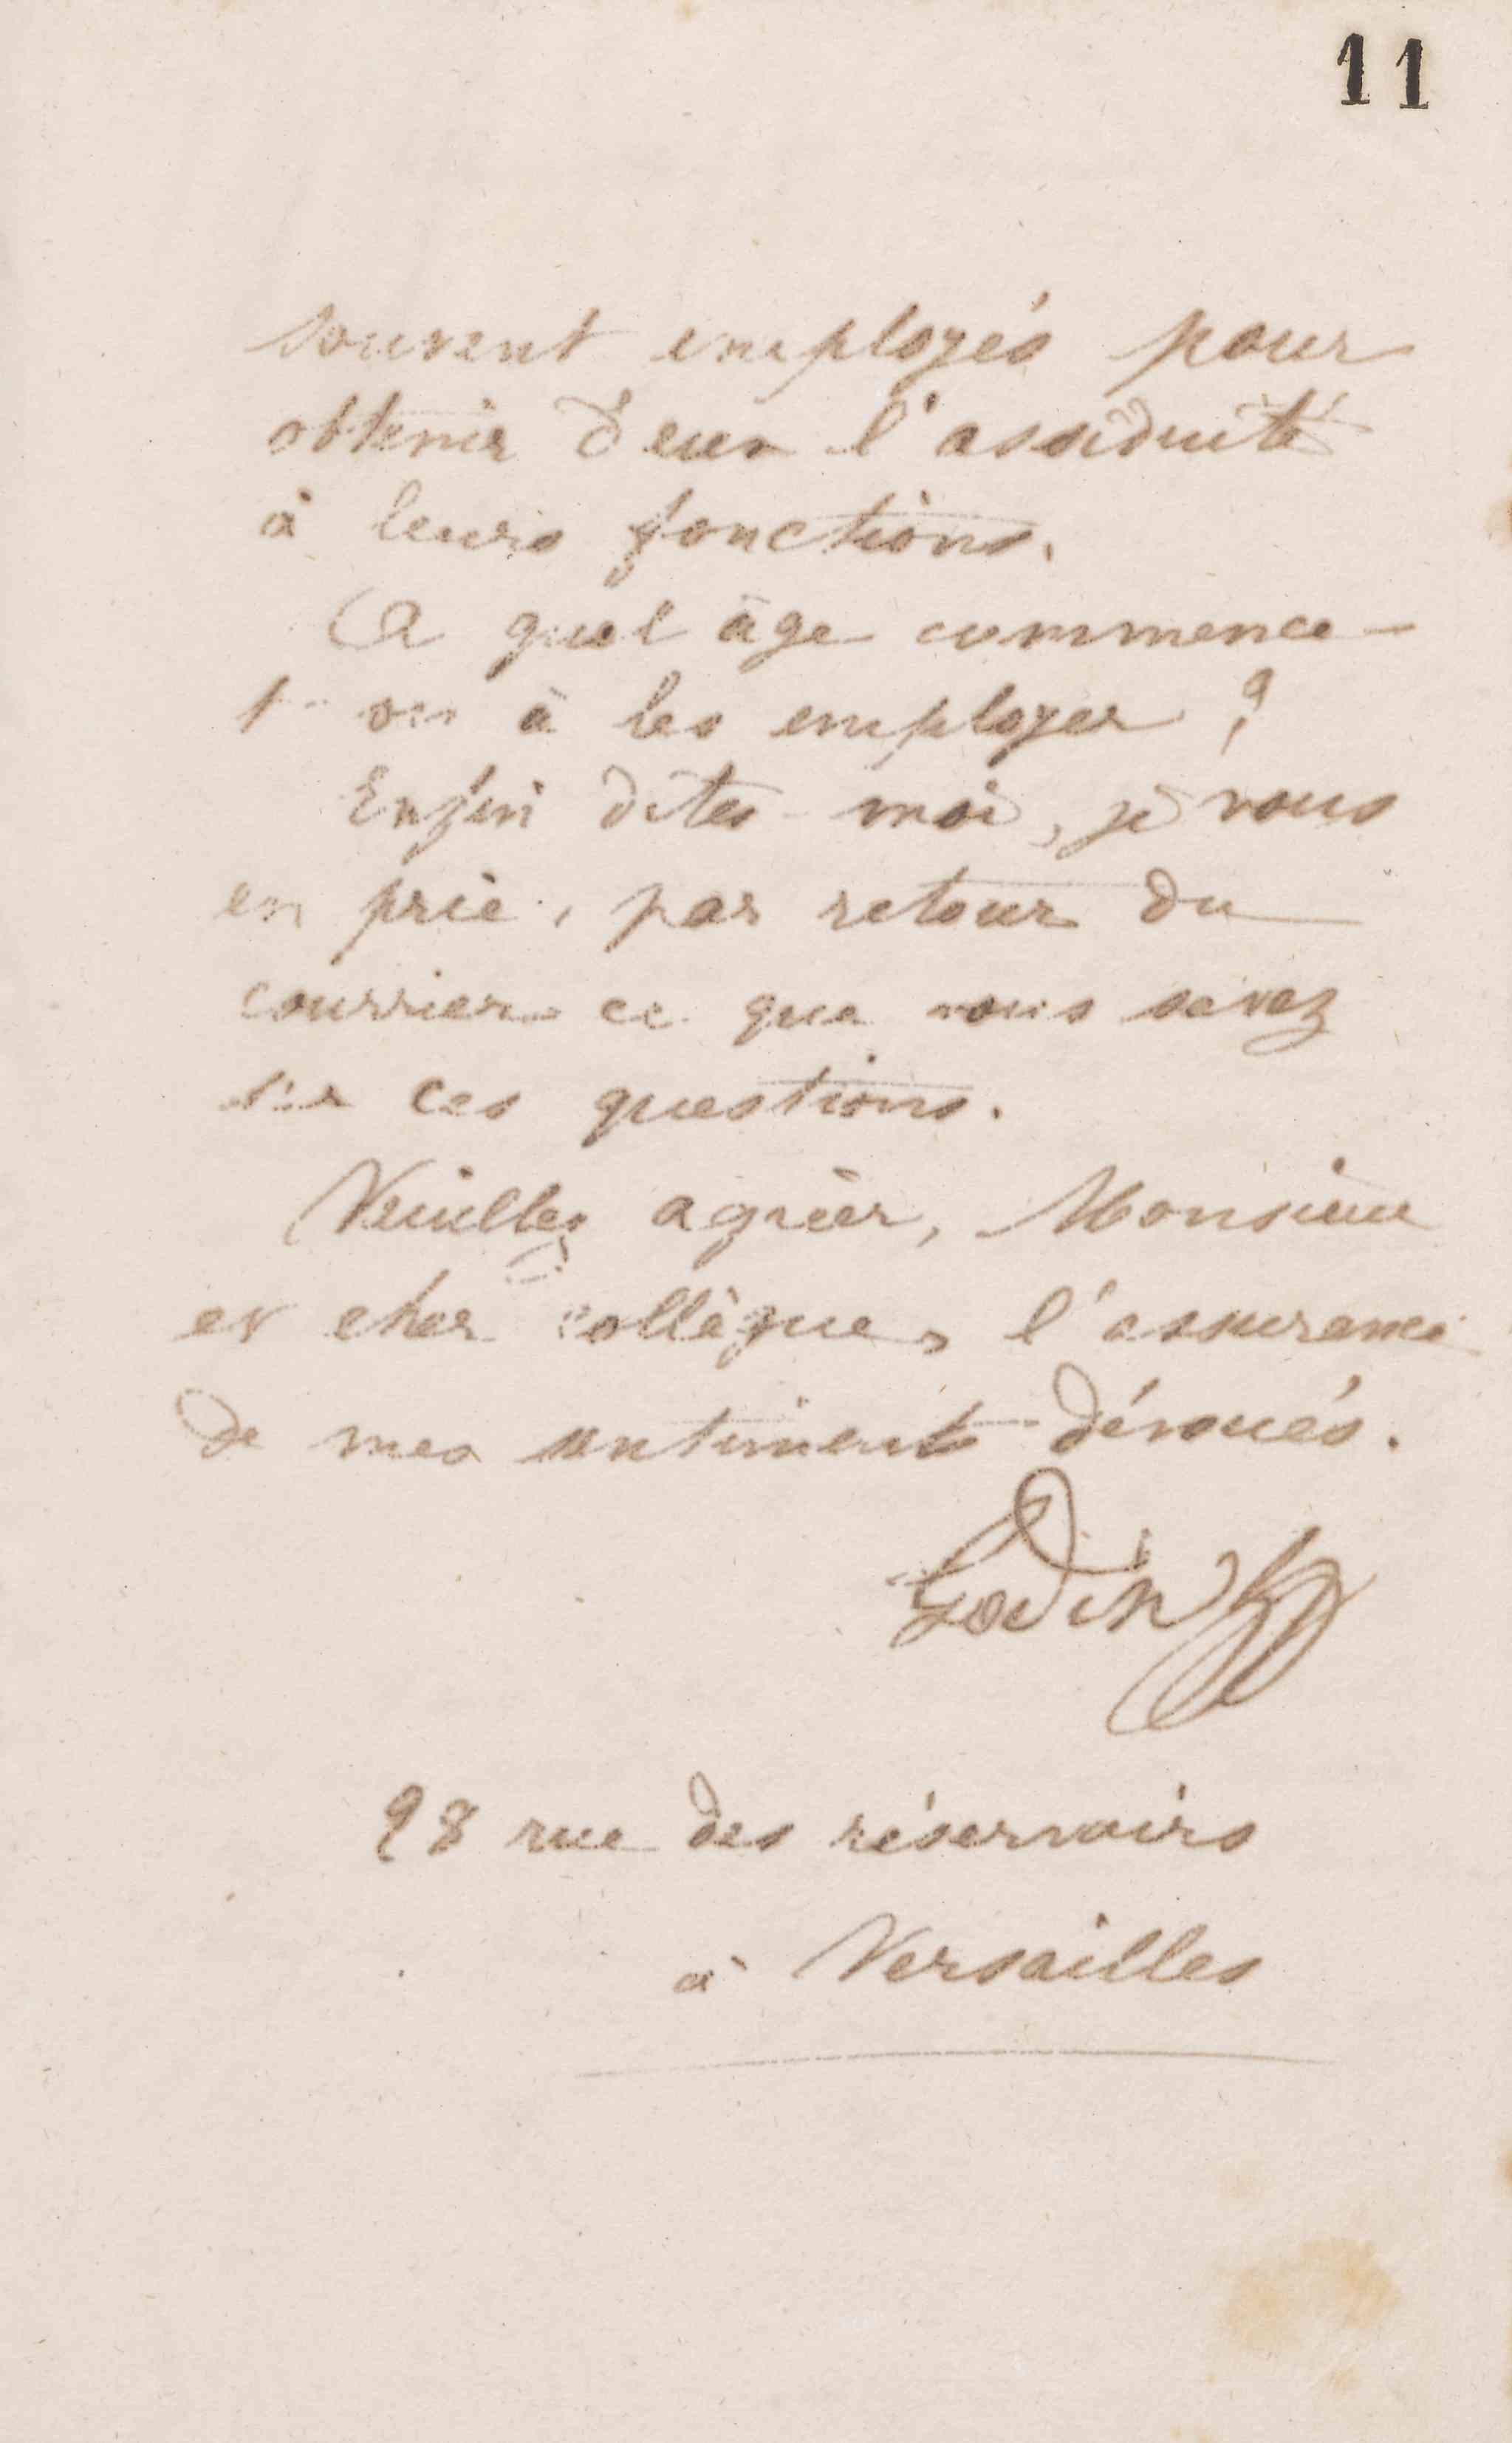 11
souvent employés pour
obtenir d'eux l'assiduité
à leurs fonctions.
A quel âge commence-
t-on à les employer ?
Enfin dites-moi, je vous
en prie, par retour du
courrier ce que vous savez
sur ces questions.
Veuillez agréer, Monsieur
et cher collègue, l'assurance
de mes sentiments dévoués.
Godin
28 rue des réservoirs
à Versailles